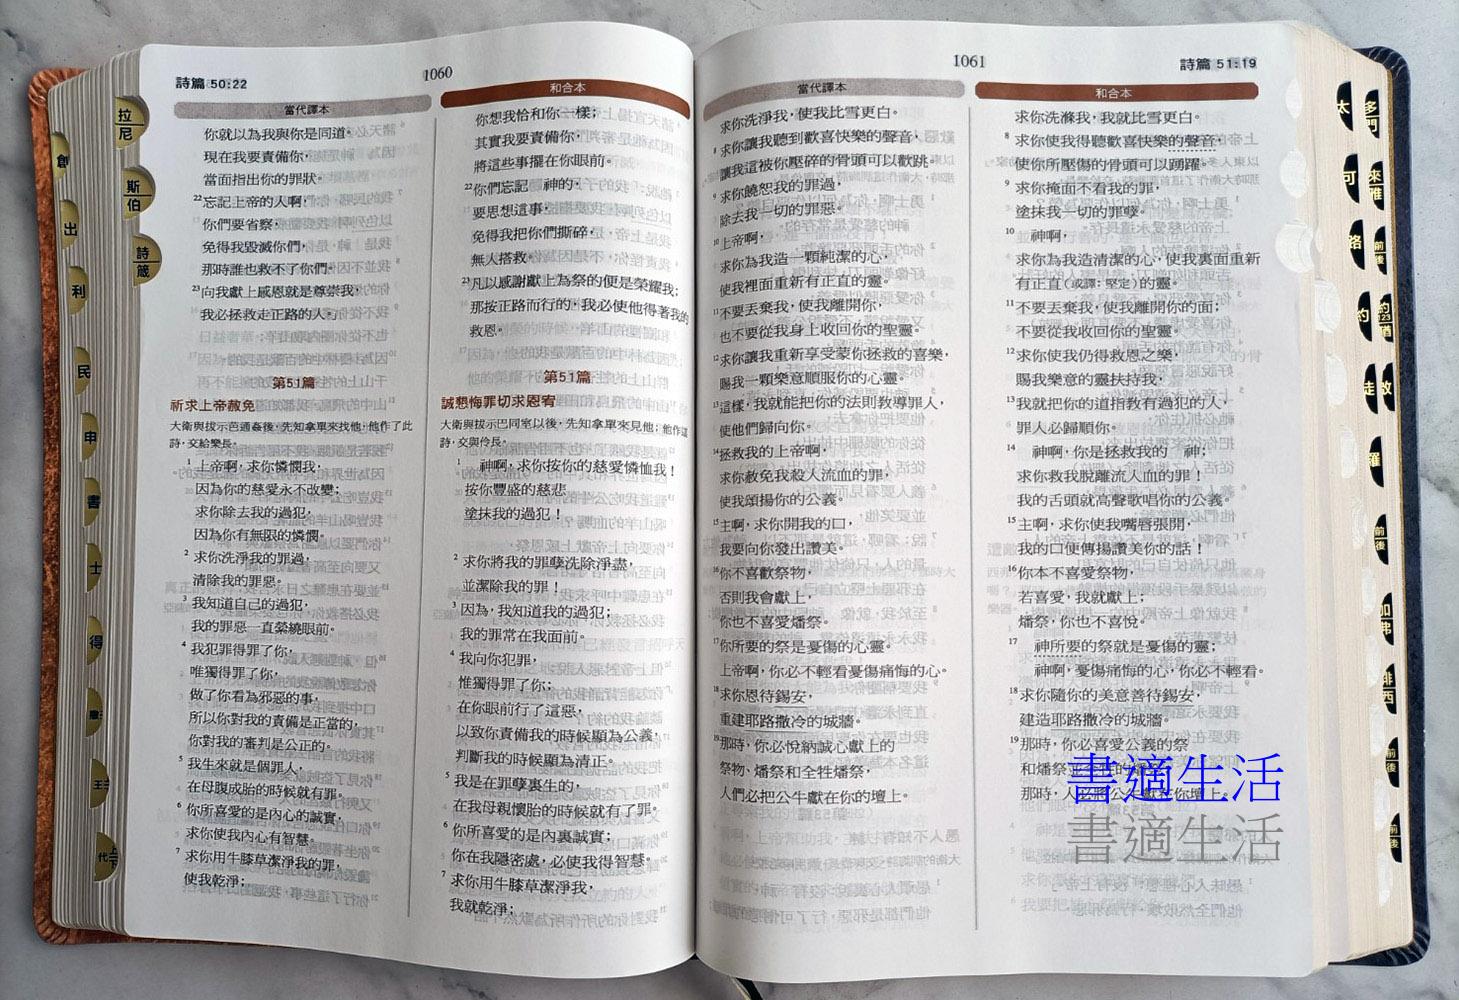 詩篇 50:22
1060
當代譯本
你就以為我與你是同道。
現在我要責備你，
當面指出你的罪狀。
22忘記上帝的人啊，
你們要省察，
免得我毀滅你們，
那時誰也救不了你們。
23向我獻上感恩就是尊崇我，
我必拯救走正路的人。
第51篇
祈求上帝赦免
大衛與拔示芭通姦後，先知拿單來找他，他作了此
詩，交給樂長。
1上帝啊，求你憐憫我，
因為你的慈愛永不改變；
求你除去我的過犯，
因為你有無限的憐憫。
2求你洗淨我的罪過，
清除我的罪惡。
3我知道自己的過犯，
我的罪惡一直縈繞眼前。
4我犯罪得罪了你，
唯獨得罪了你，
做了你看為邪惡的事，
所以你對我的責備是正當的，
你對我的審判是公正的。
5我生來就是個罪人，
在母腹成胎的時候就有罪。
6你所喜愛的是內心的誠實，
求你使我內心有智慧。
7求你用牛膝草潔淨我的罪，
使我乾淨；
和合本
你想我恰和你一樣；
其實我要責備你，
將這些事擺在你眼前。
22你們忘記 神的，
要思想這事，
免得我把你們撕碎，
無人搭救。
23凡以感謝獻上為祭的便是榮耀我；
那按正路而行的，我必使他得著我的
救恩。
第51篇
誠懇悔罪切求恩宥
大衛與拔示巴同室以後，先知拿單來見他；他作這
詩，交與伶長。
1 神啊，求你按你的慈愛憐恤我！
按你豐盛的慈悲
塗抹我的過犯！
2求你將我的罪孽洗除淨盡，
並潔除我的罪！
3因為，我知道我的過犯；
我的罪常在我面前。
4我向你犯罪，
惟獨得罪了你；
在你眼前行了這惡，
以致你責備我的時候顯為公義，
判斷我的時候顯為清正。
5我是在罪孽裏生的，
在我母親懷胎的時候就有了罪。
6你所喜愛的是內裏誠實；
你在我隱密處，必使我得智慧。
7求你用牛膝草潔淨我，
我就乾淨；
1061
詩篇 51:19
當代譯本
求你洗淨我，使我比雪更白。
8求你讓我聽到歡喜快樂的聲音，
讓我這被你壓碎的骨頭可以歡跳。
9求你饒恕我的罪過，
除去我一切的罪惡。
10上帝啊，
求你為我造一顆純潔的心，
使我裡面重新有正直的靈。
11不要丟棄我，使我離開你，
也不要從我身上收回你的聖靈。
12求你讓我重新享受蒙你拯救的喜樂，
賜我一顆樂意順服你的心靈。
13這樣，我就能把你的法則教導罪人，
使他們歸向你。
14拯救我的上帝啊，
求你赦免我殺人流血的罪，
使我頌揚你的公義。
15主啊，求你開我的口，
我要向你發出讚美。
16你不喜歡祭物，
否則我會獻上，
你也不喜愛燔祭。
17你所要的祭是憂傷的心靈。
上帝啊，你必不輕看憂傷痛悔的心。
18求你恩待錫安，
重建耶路撒冷的城牆。
19那時，你必悅納誠心獻上的
祭物、燔祭和全牲燔祭，
人們必把公牛獻在你的壇上。
和合本
求你洗滌我，我就比雪更白。
8求你使我得聽歡喜快樂的聲音，
使你所壓傷的骨頭可以踴躍。
9求你掩面不看我的罪，
塗抹我一切的罪孽。
10 神啊，
求你為我造清潔的心，使我裏面重新
有正直（或譯：堅定）的靈。
11不要丟棄我，使我離開你的面；
不要從我收回你的聖靈。
12求你使我仍得救恩之樂，
賜我樂意的靈扶持我，
13我就把你的道指教有過犯的人，
罪人必歸順你。
14 神啊，你是拯救我的 神；
求你救我脫離流人血的罪！
我的舌頭就高聲歌唱你的公義。
15主啊，求你使我嘴唇張開，
我的口便傳揚讚美你的話！
16你本不喜愛祭物，
若喜愛，我就獻上；
燔祭，你也不喜悅。
17 神所要的祭就是憂傷的靈；
神啊，憂傷痛悔的心，你必不輕看。
18求你隨你的美意善待錫安，
建造耶路撒冷的城牆。
19那時，你必喜愛公義的祭
和燔祭並全牲的燔祭；
那時，人必將公牛獻在你壇上。
書適生活
書適生活
拉
尼
斯
伯
詩
箴
創
出
利
民
申
書
士
得
代
上下
太
可
路
約
走
羅
多
門
來
雅
前後
約
123
猶
啟
前後
加
弗
腓
西
前後
前後